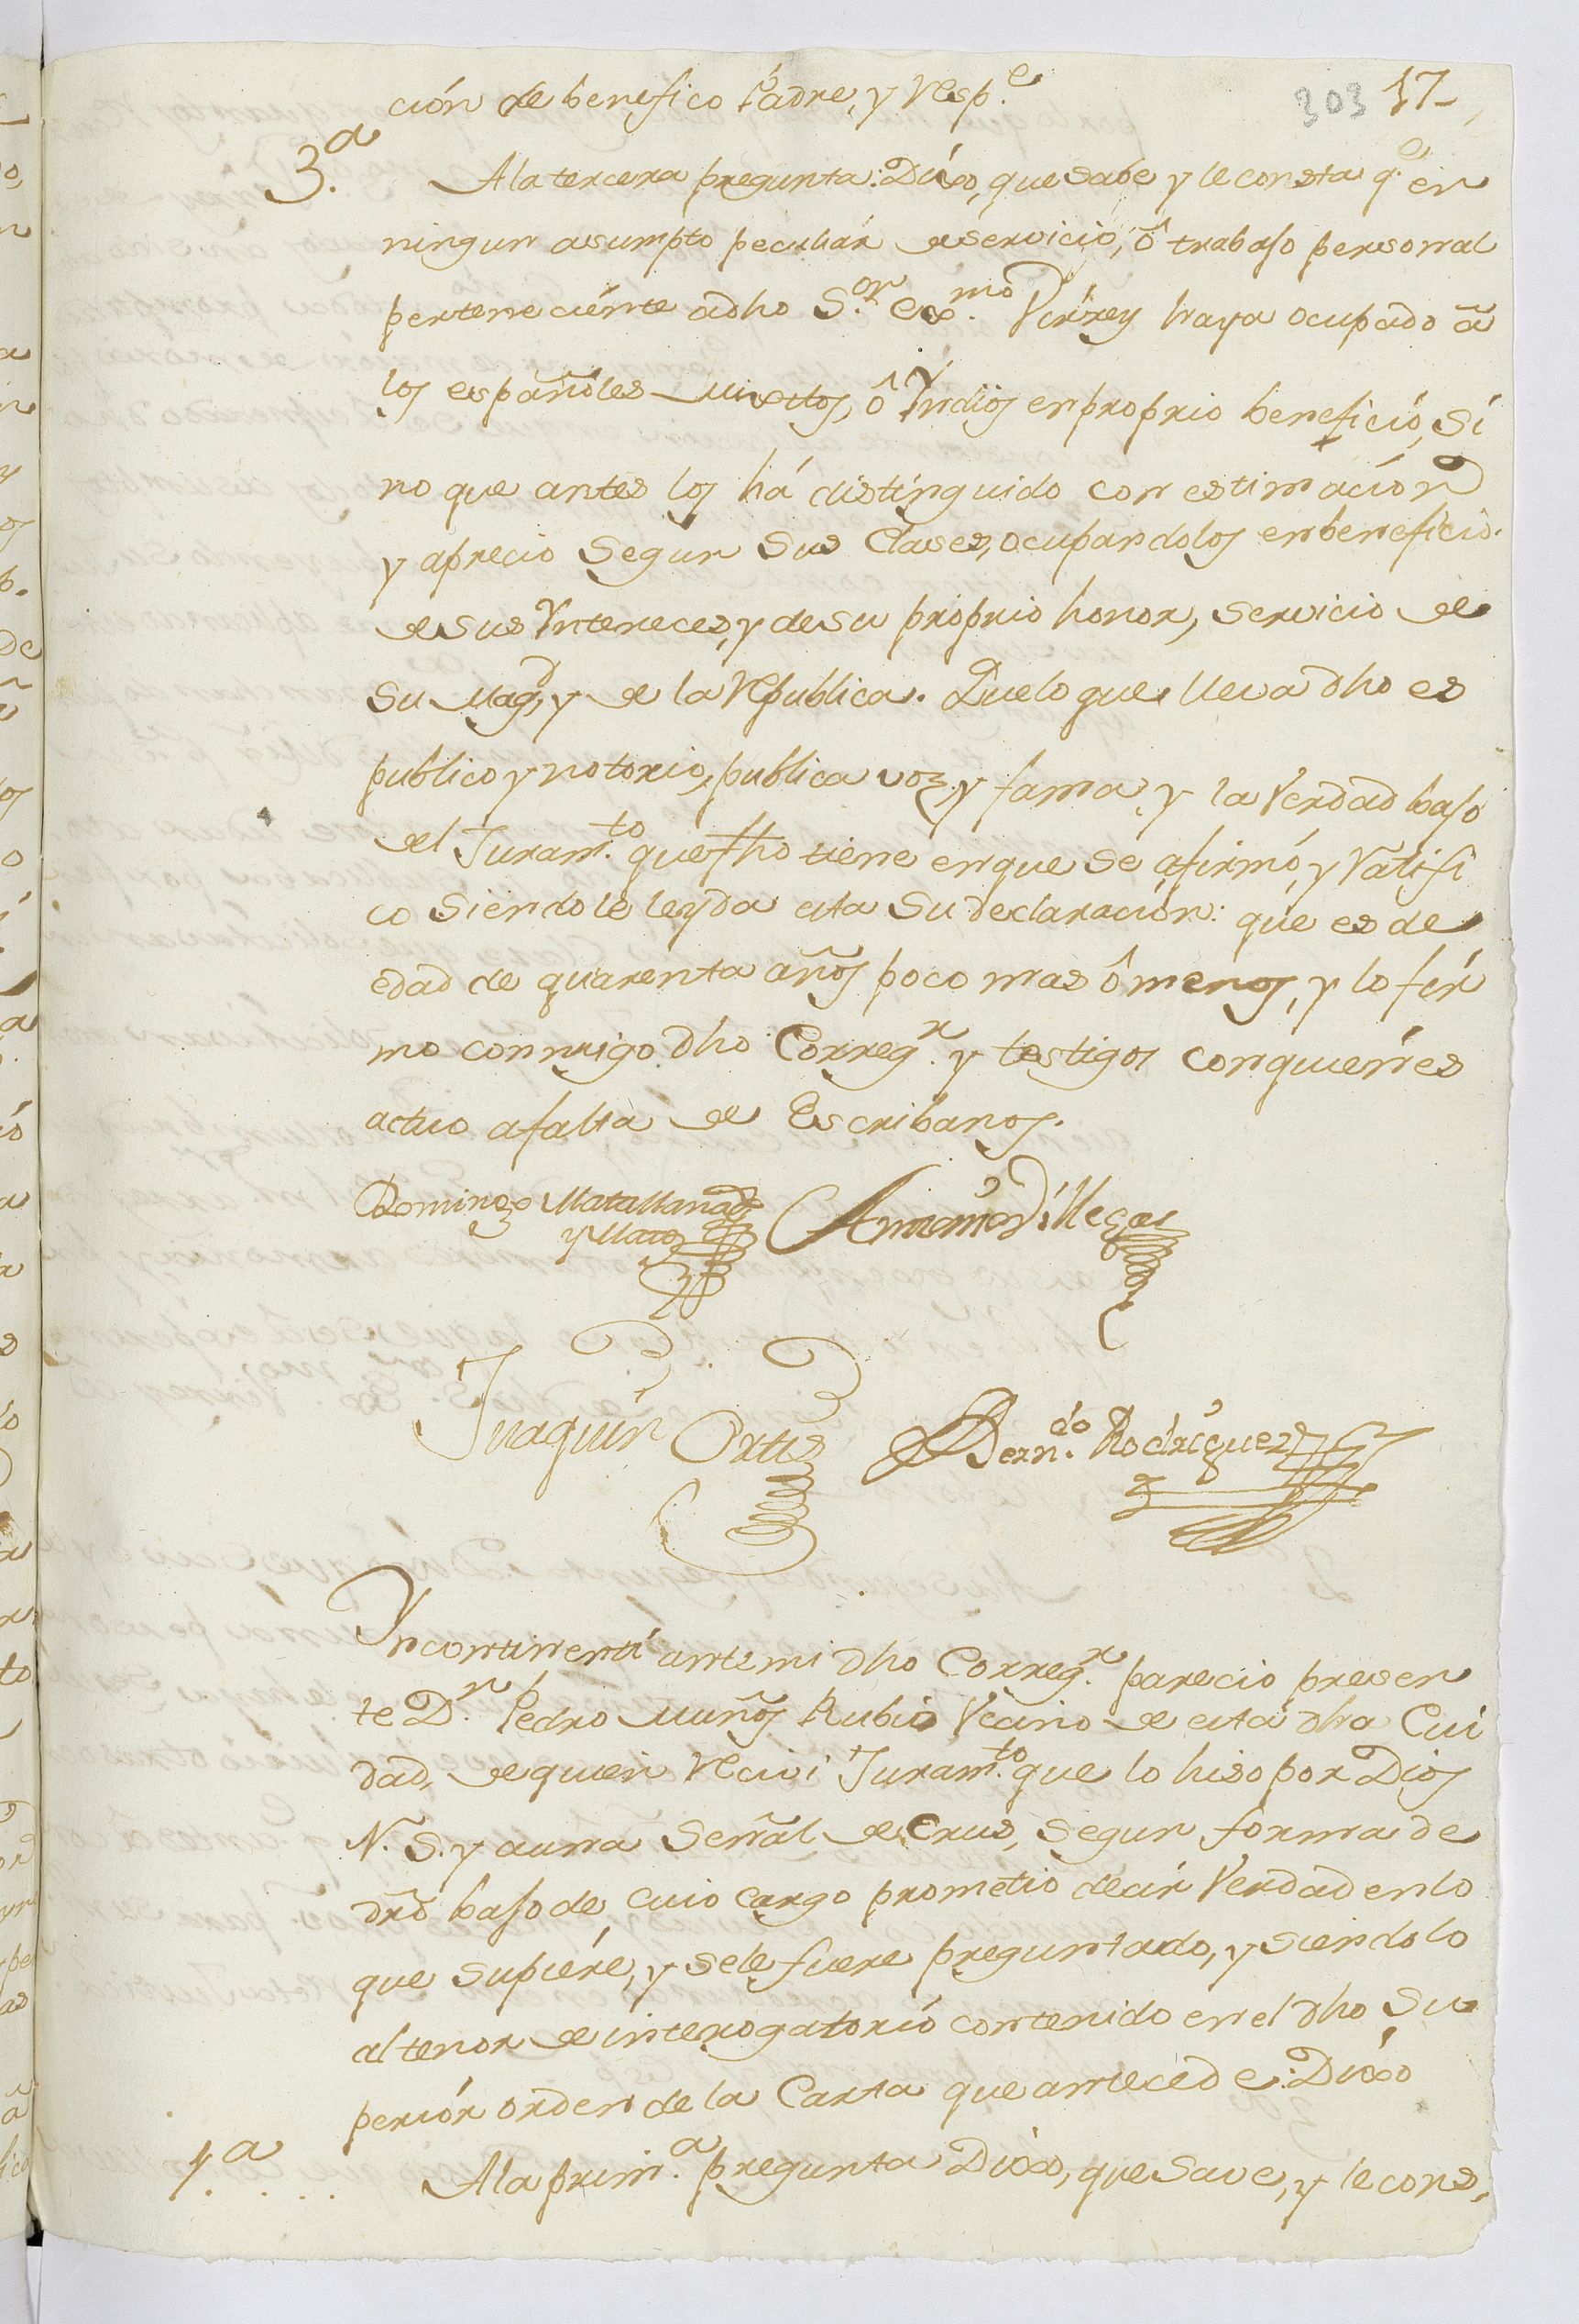 303 17
ción de benefico Padre, y Resp.e
3.a Ala tercera pregunta: Dixo, que sabe y le consta q.e en
ningun asumpto peculiár de servicio, ô trabajo personal
perteneciente adho S.or Exmo. Virrey haya ocupado â
los españoles Mixtos, ô Yndios en proprio beneficio, Si
no que antes los há distinguido con estimación
y aprecio Segun Sus Clases, ocupandolos en beneficio
de sus Yntereces, y de su proprio honor, servicio de
Su Magd, y de la Republica. Que lo que lleva dho es
publico y notorio, publica voz, y fama, y la Verdad bajo
del Juram.to que fho tiene en que se afirmó, y Ratifi
co Siendole leyda esta Su declaración: que es de
edad de quarenta años poco mas ô menos, y lo fir
mo conmigo dho Correg.r y testigos con quienes
actuo a falta de Escribanos.
Domingo Matallana
y Mato Antonio Villegas
Juaquin Ortis Bern.do Rodriguez
Yncontinenti ante mi dho Correg.r parecio presen
te D.n Pedro Muños Rubio Vecino de esta dha Ciu
dad, de quien Recivi Juram.to que lo hiso por Dios
N. S. y a una Señal de Crus, segun forma de
dro bajo de cuio cargo prometio decir Verdad en lo
que supiére, y se le fuere preguntado, y siendolo
al tenor de interogatorio contenido en el dho Su
periór orden de la Carta que antecede: Dixo
1.a Ala prim.a pregunta Dixo, que save, y le cons,